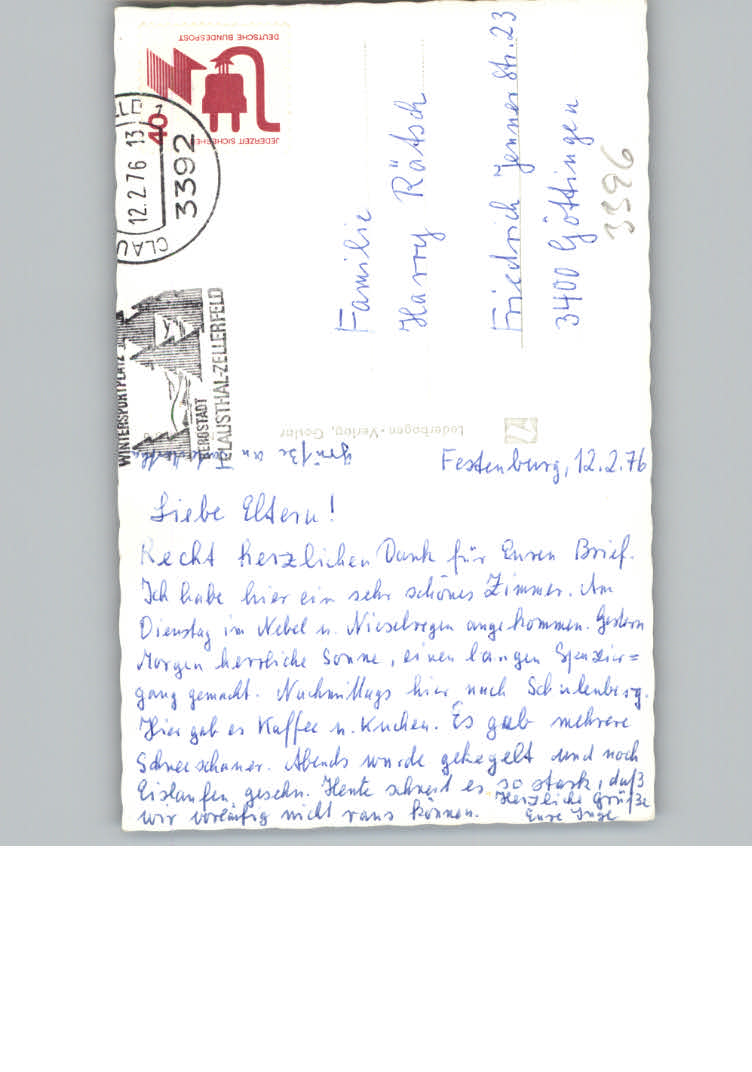 DEUTSCHE BUNDESPOST
JEDERZEIT SICHERHEIT
40
12.2.76 13
3392
CLAU
WINTERSPORTPLATZ
BERGSTADT
CLAUSTHAL-ZELLERFELD
Familie
Harry Rätsch
Friedrich Jenner Str. 23
3400 Göttingen
3396
Lederbogen-Verlag, Goslar
Grüße an
Festenburg, 12.2.76
Liebe Eltern!
Recht herzlichen Dank für Euren Brief.
Ich habe hier ein sehr schönes Zimmer. Am
Dienstag im Nebel u. Nieselregen angekommen. Gestern
Morgen herrliche Sonne, einen langen Spazier=
gang gemacht. Nachmittags hier nach Schulenberg.
Hier gab es Kaffee u. Kuchen. Es gab mehrere
Schneeschauer. Abends wurde gekegelt und noch
Eislaufen gesehn. Heute schneit es so stark, daß
wir vorläufig nicht raus können.
Herzliche Grüße
Eure Inge